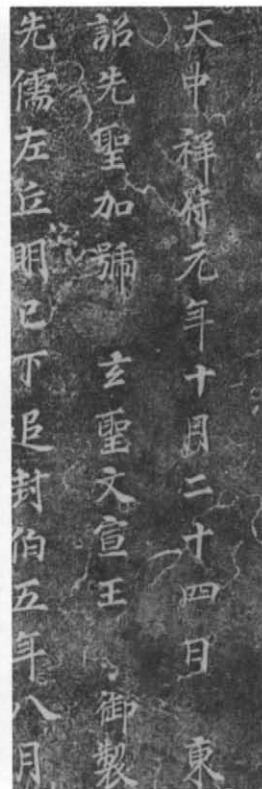 大中祥符元年十月二十四日 東
詔先聖加號 玄聖文宣王 御製
先儒左丘明已下追封伯五年八月